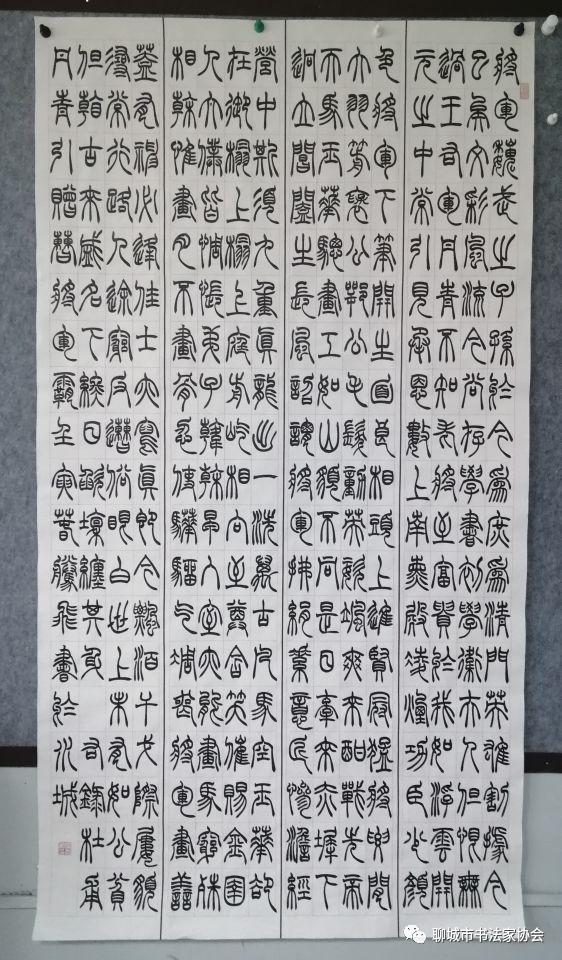 將軍魏武之子孫於今為庶為清門英雄割據今
已矣文彩風流今尚存學書初學衛夫人但恨無
過王右軍丹青不知老將至富貴於我如浮雲開
元之中常引見承恩數上南薰殿凌煙功臣少顏
色將軍下筆開生面良相頭上進賢冠猛將腰間
大羽箭褒公鄂公毛髮動英姿颯爽來酣戰先帝
天馬玉華驄畫工如山貌不同是日牽來赤墀下
迥立閶闔生長風詔謂將軍拂絹素意匠慘澹經
營中斯須九重真龍出一洗萬古凡馬空玉華卻
在御榻上榻上庭前屹相向至尊含笑催賜金圉
人太僕皆惆悵弟子韓幹早入室亦能畫馬窮殊
相幹惟畫肉不畫骨忍使驊騮氣凋喪將軍畫善
蓋有神必逢佳士亦寫真即今飄泊干戈際屢貌
尋常行路人途窮反遭俗眼白世上未有如公貧
但看古來盛名下終日坎壈纏其身 右錄杜甫
丹青引贈曹將軍霸壬寅春騰飛書於水城
聊城市书法家协会